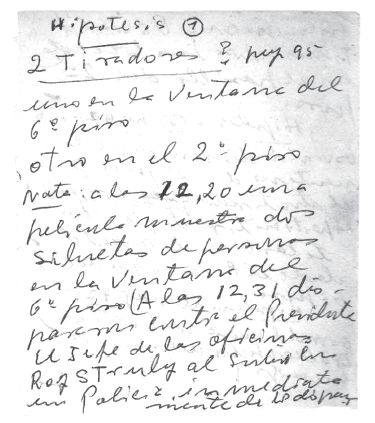 Hipotesis 1
2 Tiradores ? pag 95
uno en la Ventana del
6º piso
otro en el 2º piso
Nota: a las 12,20 una
película muestra dos
siluetas de personas
en la Ventana del
6º piso (A las 12,31 dis-
pararon contra el Presidente
El Jefe de las oficinas
Roy S Truly al subir con
un Policia inmediata
mente de los dispar